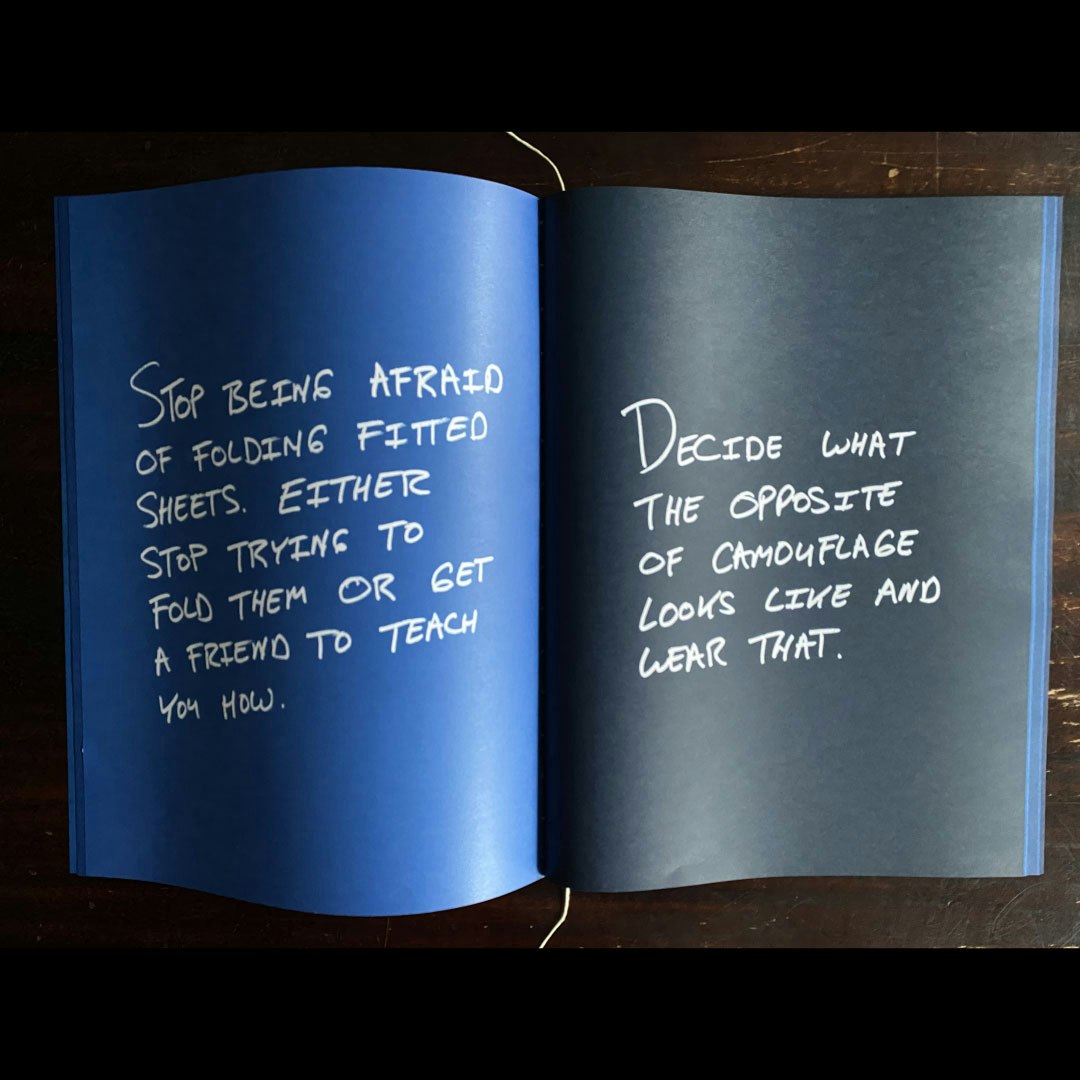 STOP BEING AFRAID
OF FOLDING FITTED
SHEETS. EITHER
STOP TRYING TO
FOLD THEM OR GET
A FRIEND TO TEACH
YOU HOW.
DECIDE WHAT
THE OPPOSITE
OF CAMOUFLAGE
LOOKS LIKE AND
WEAR THAT.